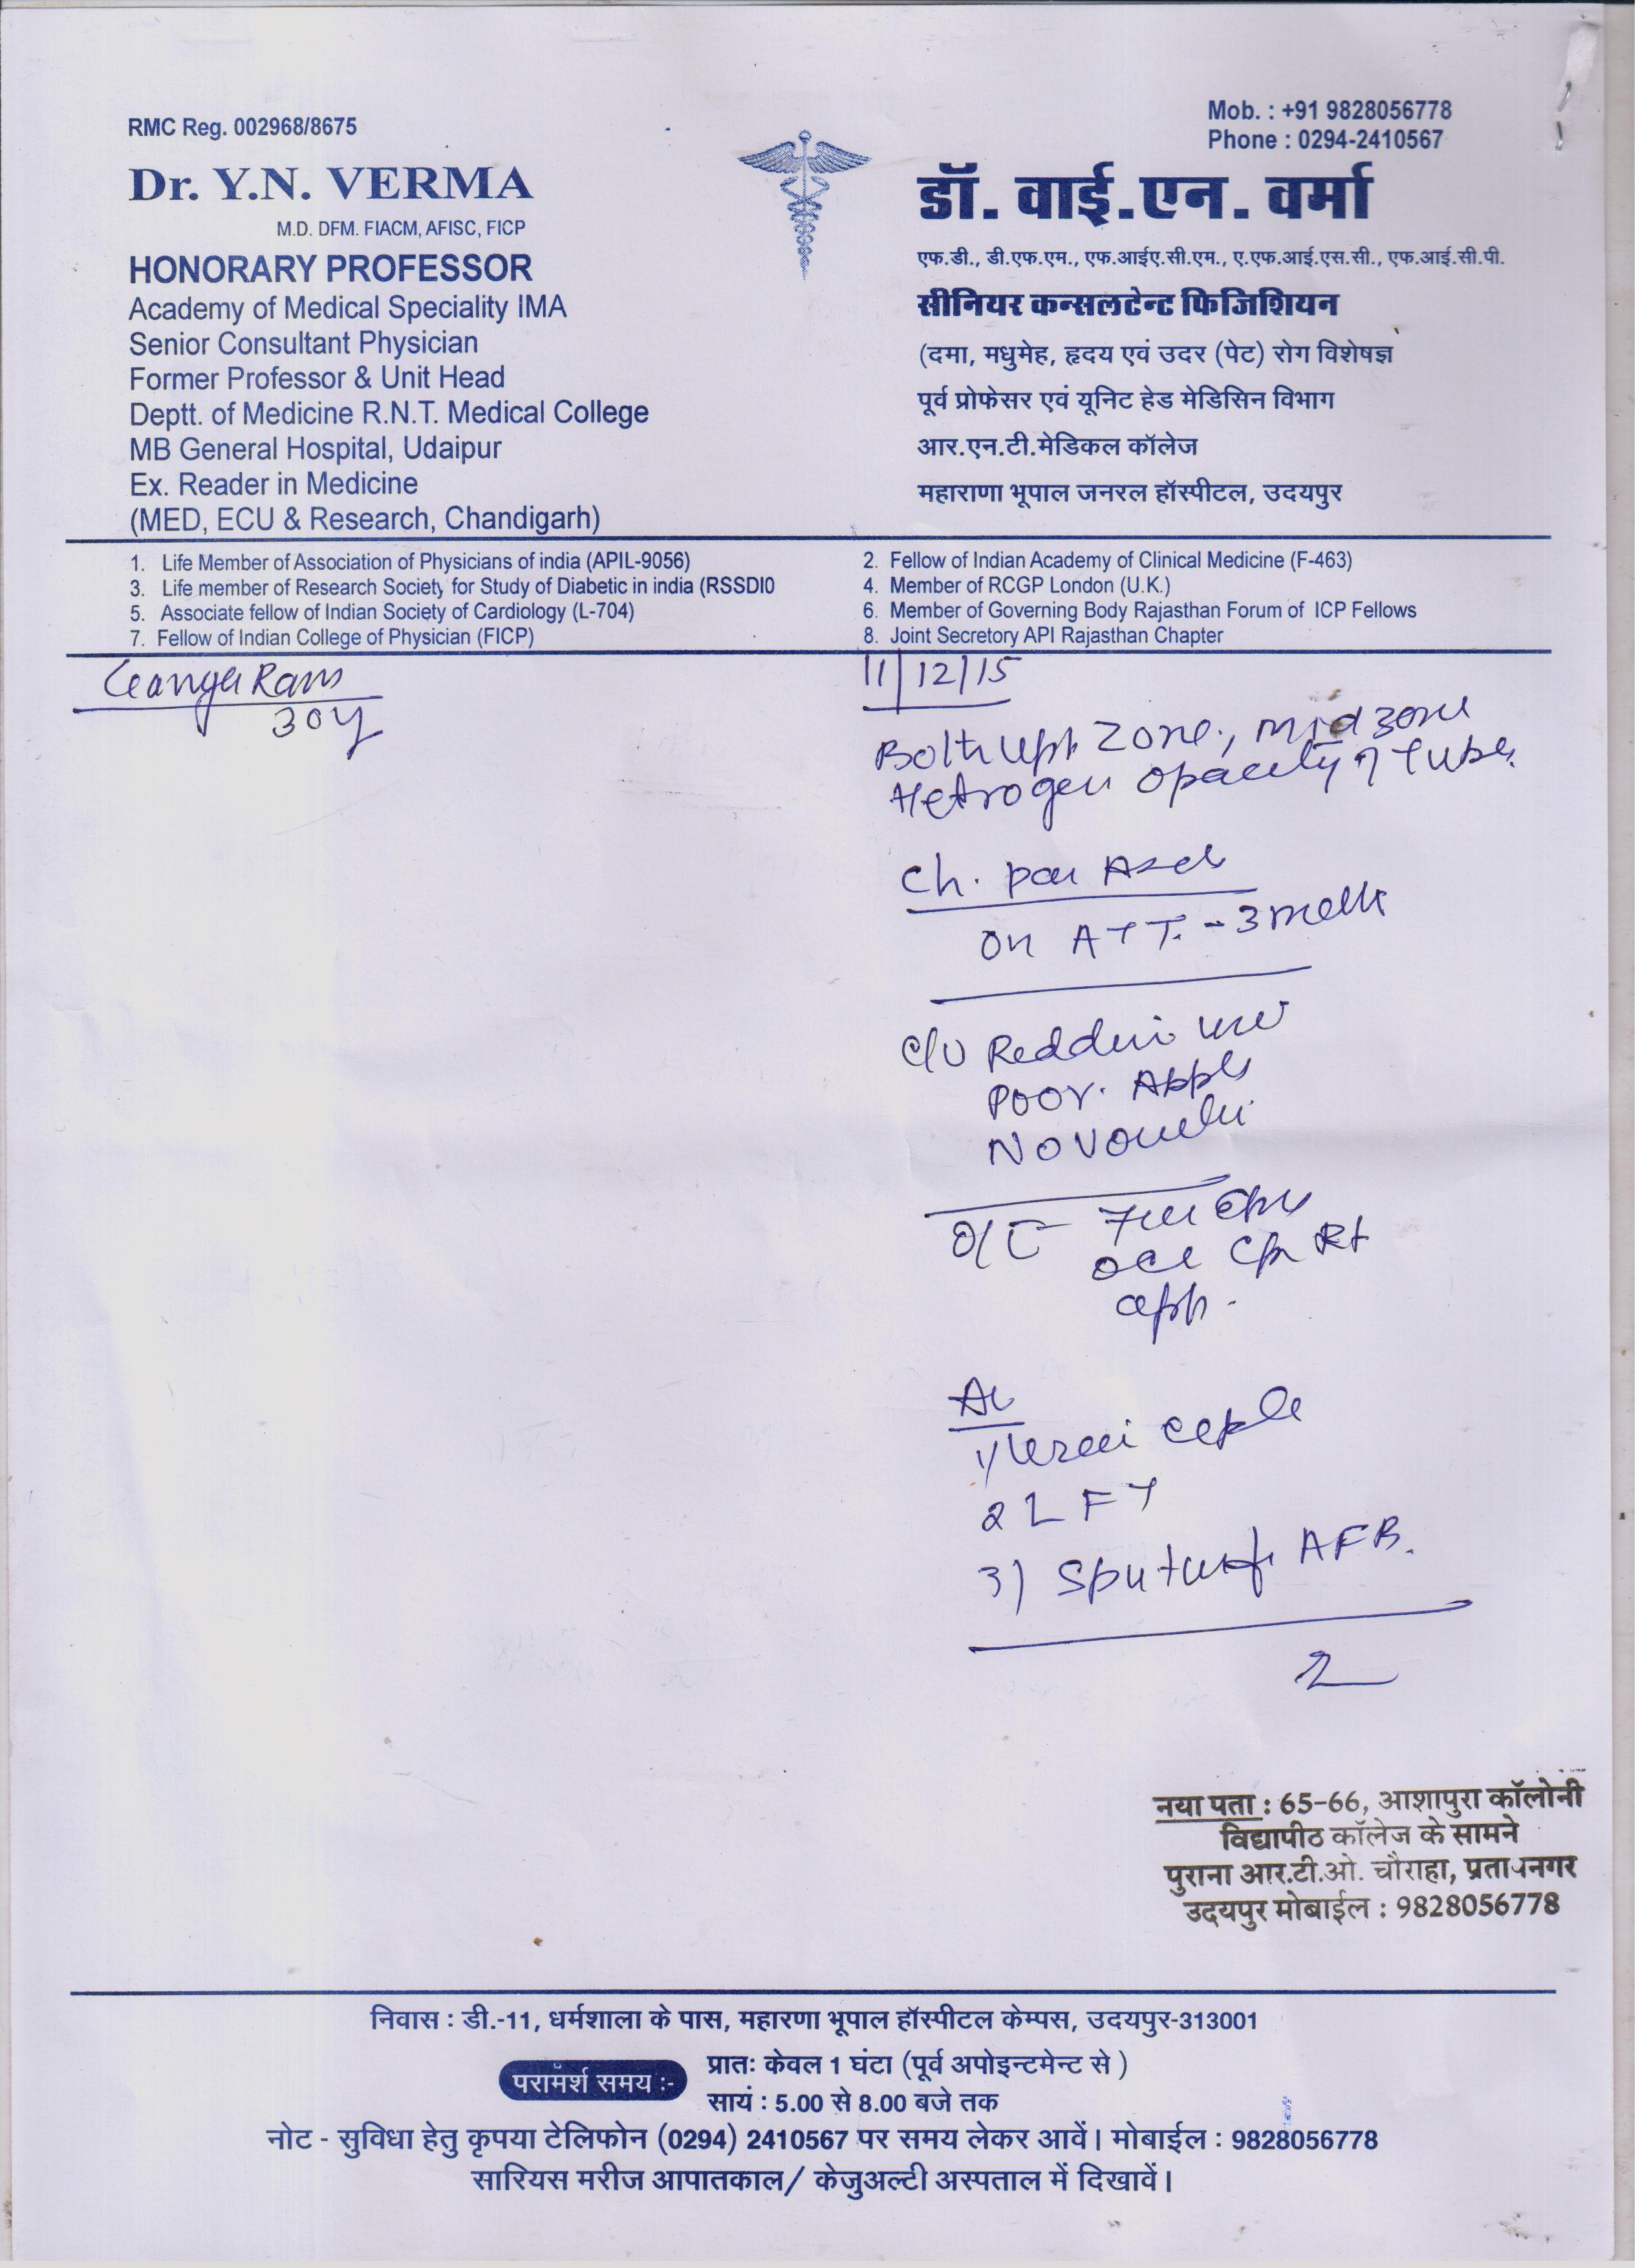 RMC Reg. 002968/8675
Mob. : +91 9828056778
Phone : 0294-2410567
Dr. Y.N. VERMA
M.D. DFM. FIACM, AFISC, FICP
HONORARY PROFESSOR
Academy of Medical Speciality IMA
Senior Consultant Physician
Former Professor & Unit Head
Deptt. of Medicine R.N.T. Medical College
MB General Hospital, Udaipur
Ex. Reader in Medicine
(MED, ECU & Research, Chandigarh)
डॉ. वाई.एन. वर्मा
एफ.डी., डी.एफ.एम., एफ.आईए.सी.एम., ए.एफ.आई.एस.सी., एफ.आई.सी.पी.
सीनियर कन्सलटेन्ट फिजिशियन
(दमा, मधुमेह, हृदय एवं उदर (पेट) रोग विशेषज्ञ
पूर्व प्रोफेसर एवं यूनिट हेड मेडिसिन विभाग
आर.एन.टी.मेडिकल कॉलेज
महाराणा भूपाल जनरल हॉस्पीटल, उदयपुर
1. Life Member of Association of Physicians of india (APIL-9056)
2. Fellow of Indian Academy of Clinical Medicine (F-463)
3. Life member of Research Society for Study of Diabetic in india (RSSDI0
4. Member of RCGP London (U.K.)
5. Associate fellow of Indian Society of Cardiology (L-704)
6. Member of Governing Body Rajasthan Forum of ICP Fellows
7. Fellow of Indian College of Physician (FICP)
8. Joint Secretory API Rajasthan Chapter
Ganga Ram
30y
11/12/15
Both Zone, midzone
opacity
Ch.
on ATT. - 3
Poor.
2 LFT
3) Sputum f. AFB.
नया पता : 65-66, आशापुरा कॉलोनी
विद्यापीठ कॉलेज के सामने
पुराना आर.टी.ओ. चौराहा, प्रतापनगर
उदयपुर मोबाईल : 9828056778
निवास : डी.-11, धर्मशाला के पास, महारणा भूपाल हॉस्पीटल केम्पस, उदयपुर-313001
परामॅर्श समय :-
प्रातः केवल 1 घंटा (पूर्व अपोइन्टमेन्ट से )
सायं : 5.00 से 8.00 बजे तक
नोट - सुविधा हेतु कृपया टेलिफोन (0294) 2410567 पर समय लेकर आवें। मोबाईल : 9828056778
सारियस मरीज आपातकाल/ केजुअल्टी अस्पताल में दिखावें।